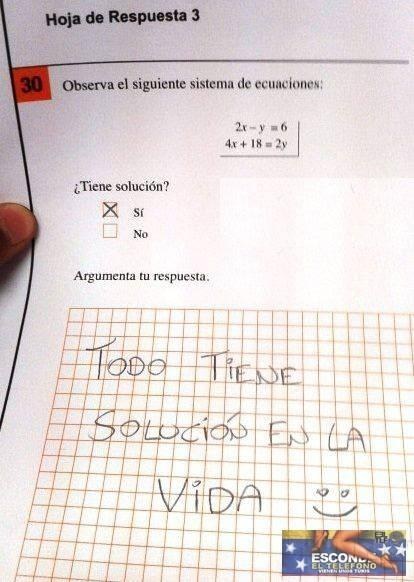 Hoja de Respuesta 3
30 Observa el siguiente sistema de ecuaciones:
2x - y = 6
4x + 18 = 2y
¿Tiene solución?
Sí
No
Argumenta tu respuesta.
TODO TiENE
SOLUCIÓN EN LA
ViDA
ESCOND
EL TELEFONO
VIENEN UNOS TUKIS